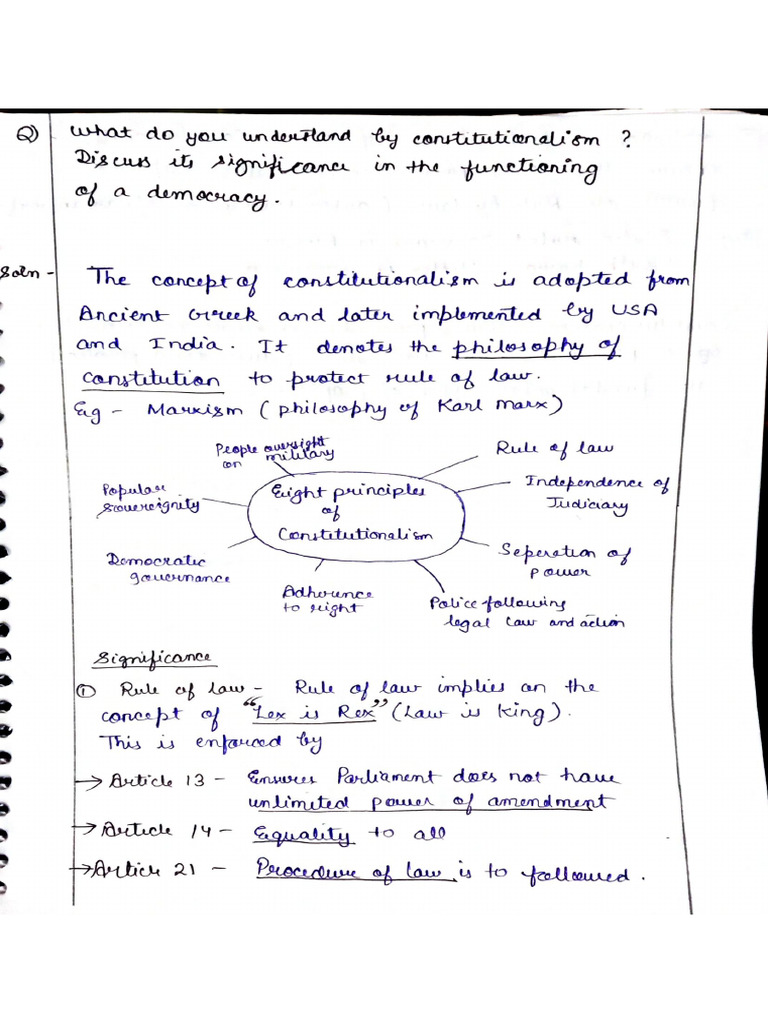 Q) What do you understand by constitutionalism ?
Discuss its significance in the functioning
of a democracy.
Soln - The concept of constitutionalism is adopted from
Ancient Greek and later implemented by USA
and India. It denotes the philosophy of
constitution to protect rule of law.
Eg - Marxism (philosophy of Karl Marx)
People oversight
on military
Rule of law
Popular
sovereignity
Eight principles
of
Constitutionalism
Independence of
Judiciary
Democratic
governance
Seperation of
power
Adherence
to right
Police following
legal law and action
Significance
① Rule of law - Rule of law implies on the
concept of "Lex is Rex" (Law is King).
This is enforced by
→ Article 13 - Ensures Parliament does not have
unlimited power of amendment
→ Article 14 - Equality to all
→ Article 21 - Procedure of law is to followed.